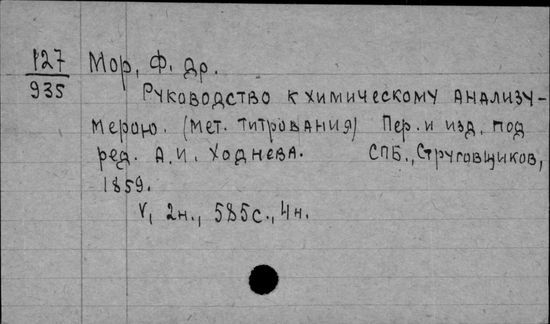 127
935
Мор, Ф. др.
Руководство к химическому анализу-
мерою. (мет. титрования) Пер. и изд. под
ред. А.И. Ходнева. СПБ., Струговщиков,
1859.
V, 2н., 585с., 4н.